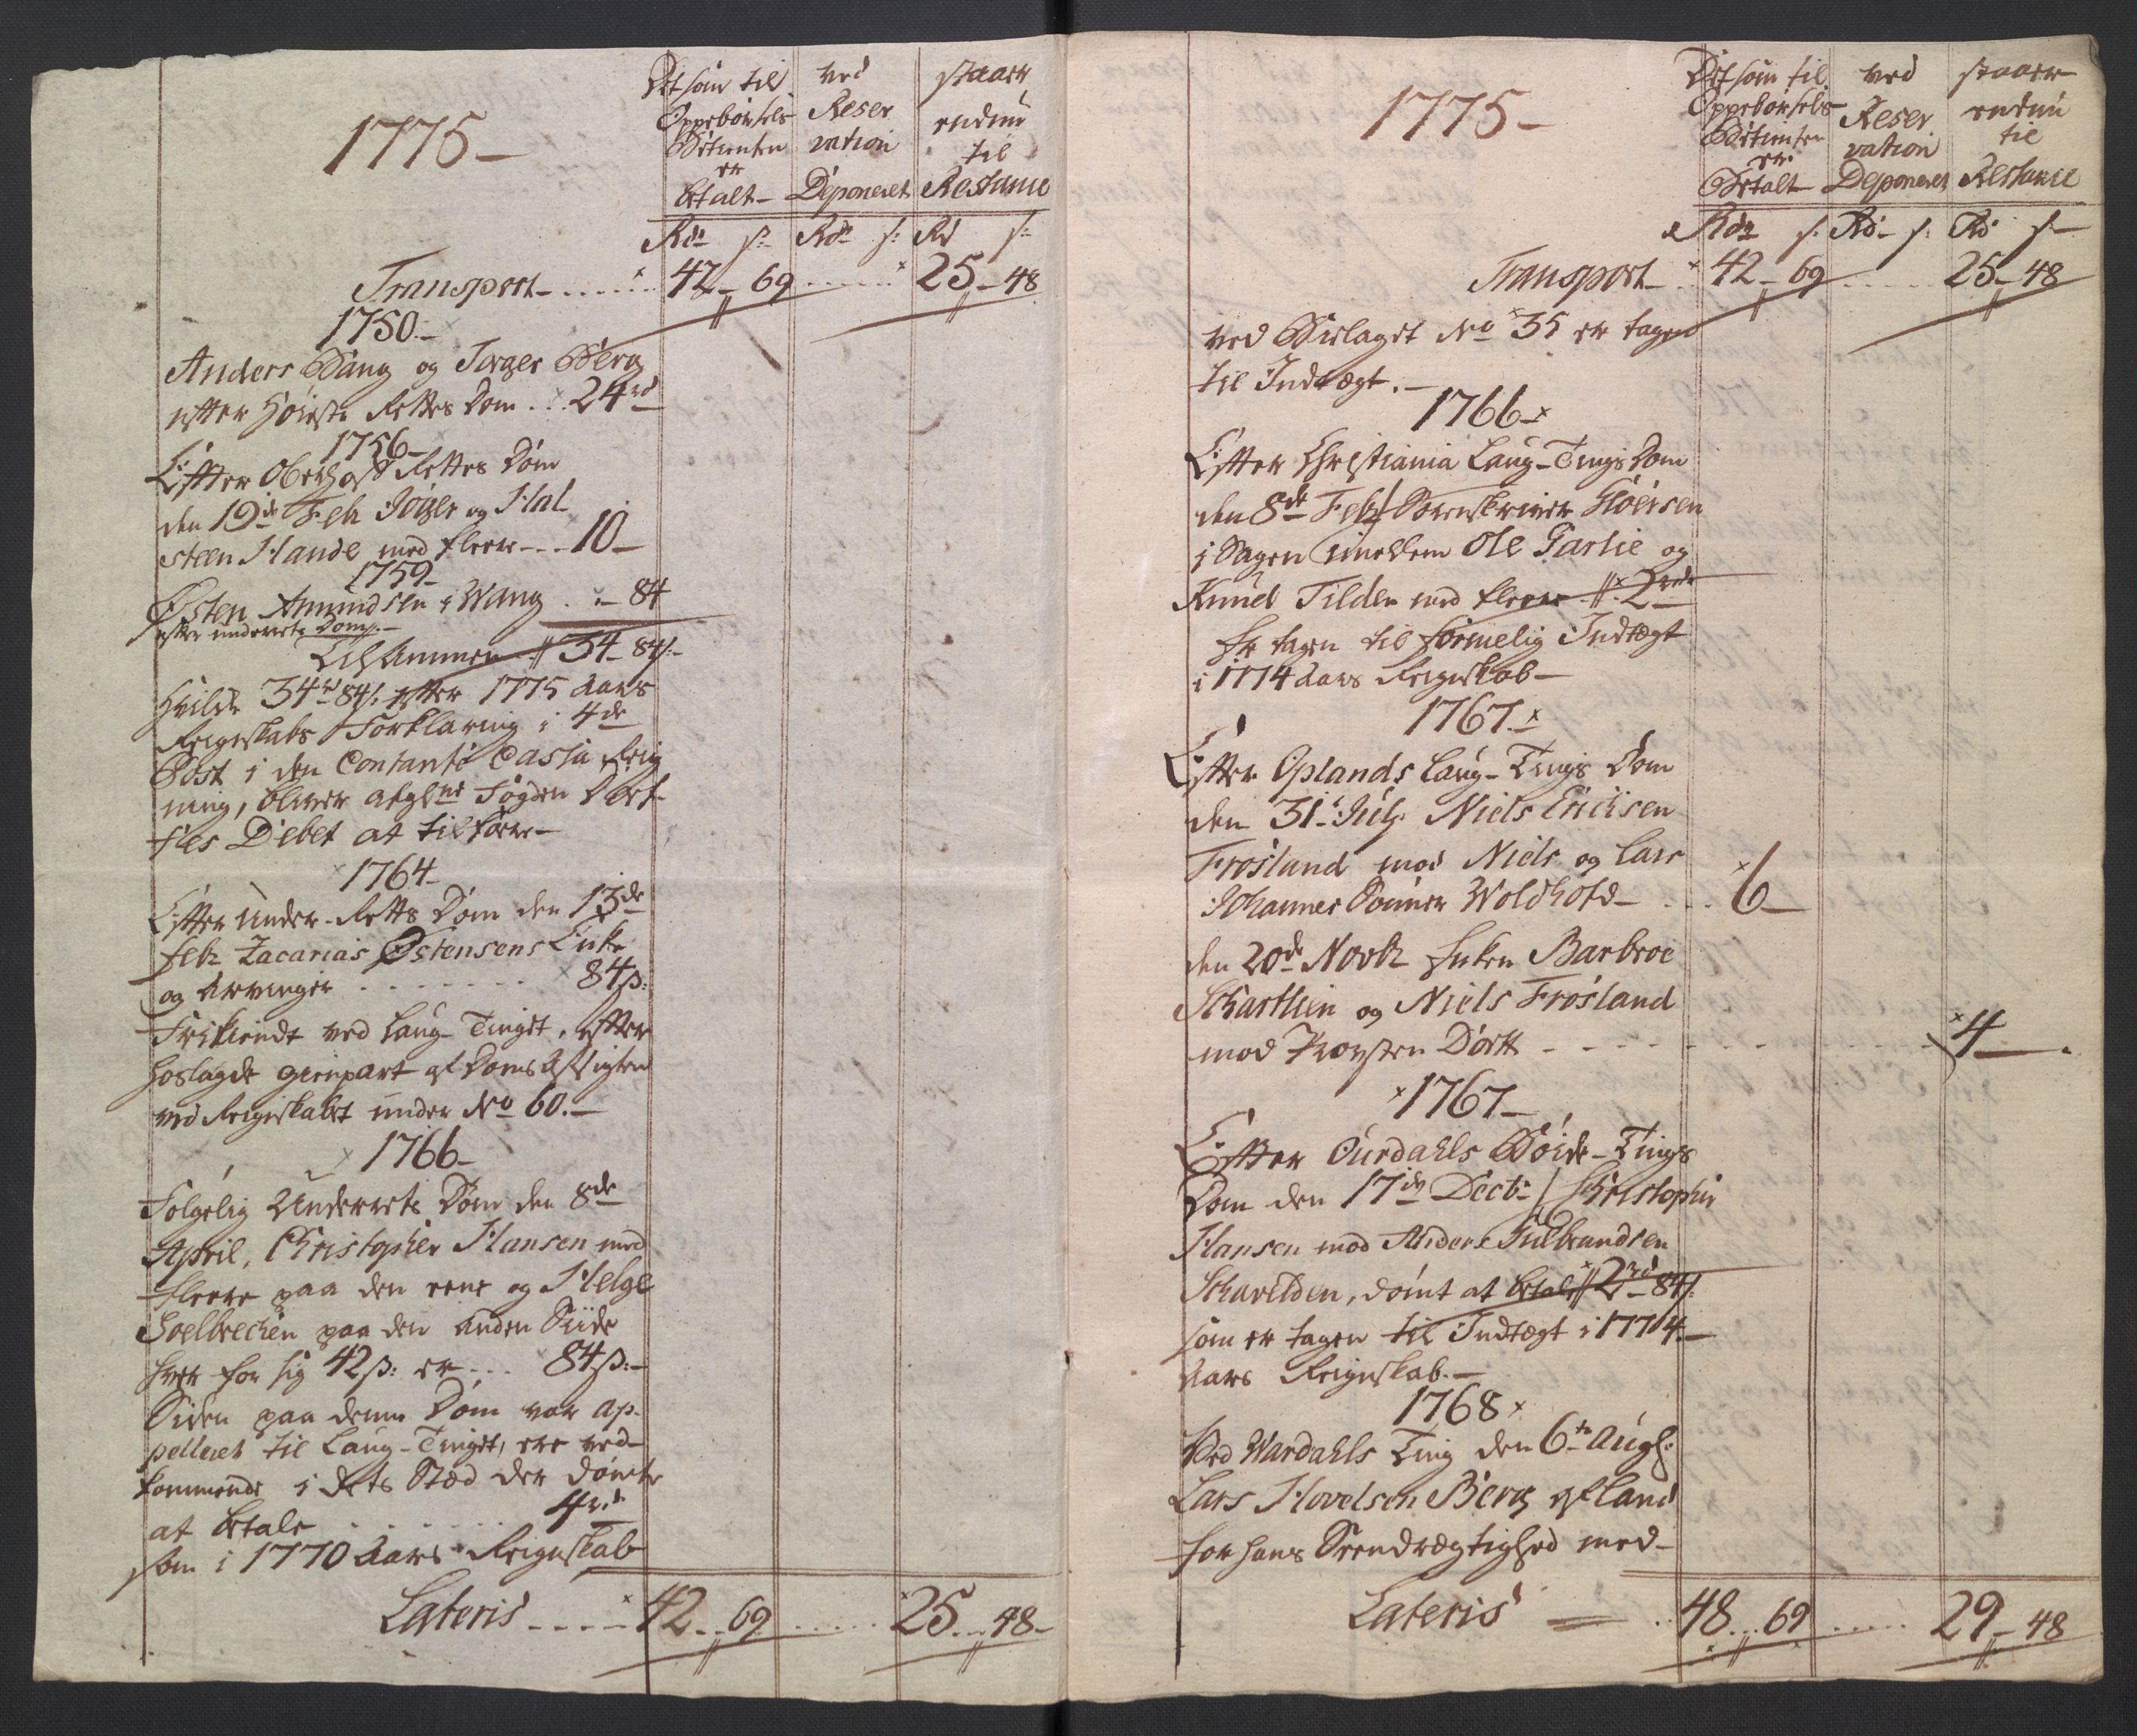 1775
Det som til
Oppebørsels
Betienten
er
betalt
ved
Reser
vation
Deponeret
staaer
endnu
til
Restance
Rd s: Rd s: Rd s:
Transport 42 69 25 48
1750
Anders Bang og Torger Berg
efter Høieste Rettes Dom 24 rd
1756
Efter Oberhof Rettes Dom
den 19de Feb Torger og Hal
steen Hande med fleere 10
1759
Østen Amundsen i Wang 84
efter underrets Dom
Tilsammen 34 84 s:
Hvilke 34 rd 84 s: efter 1775 Aars
Regnskabs Forklaring i 4de
Post i den Contante Cassa Reig
ning, bliver afgl. Fogden
fles Debet at tilføre
1764
Efter Under-Retts Dom den 13de
Febr Zacarias Østensens Enke
og Arvinger 84 s:
Frikiendt ved Laug-Tinget, efter
hoslagde gienpart af Doms Assigten
ved Reignskabet under No 60.
1766
Følgelig Underrets Dom den 8de
April, Christopher Hansen med
fleere paa den eene og Helge
Soelbrechen paa den anden Siide
hver for sig 42 s: er 84 s:
Siden paa denne Dom var ap-
pelleret til Laug-Tinget, ere ved-
kommende i dets Sted der dømte
at betale 4 rd
som i 1770 Aars Reignskab
Lateris 42 69 25 48
1775
Det som til
Oppebørsels
Betienten
er
Betalt
ved
Reser
vation
Deponeret
staaer
endnu
til
Restance
Rd s: Rd s: Rd s
Transport 42 69 25 48
ved Bielaget No 35 er tagen
til Indtægt.
1766
Efter Christiania Laug-Tings Dom
den 8de Feb Sorenskriver Fløersen
i Sagen imellem Ole Garlie og
Knud Tilden med fleere 2 rd
Er tagen til formelig Indtægt
i 1774 Aars Reignskab
1767
Efter Oplands Laug-Tings Dom
den 31 July Niels Erichsen
Frøsland mod Niels og Lars
Johannes Sønner Woldhold 6
den 20de Novbr Enken Barbroe
Schartlien og Niels Frøsland
mod Torsten Dørtt 4
1767
Efter Ourdahls Bøide-Tings
Dom den 17de Decbr Christopher
Hansen mod Anders Gulbrandsen
Schavelden, dømt at betale 2 rd 84 s:
som er tagen til Indtægt i 1774
Aars Reignskab.
1768
Ved Wardahls Ting den 6te Aug:
Lars Hovelsen Berg af Land
for hans Trendrægtighed med
Lateris 48 69 29 48